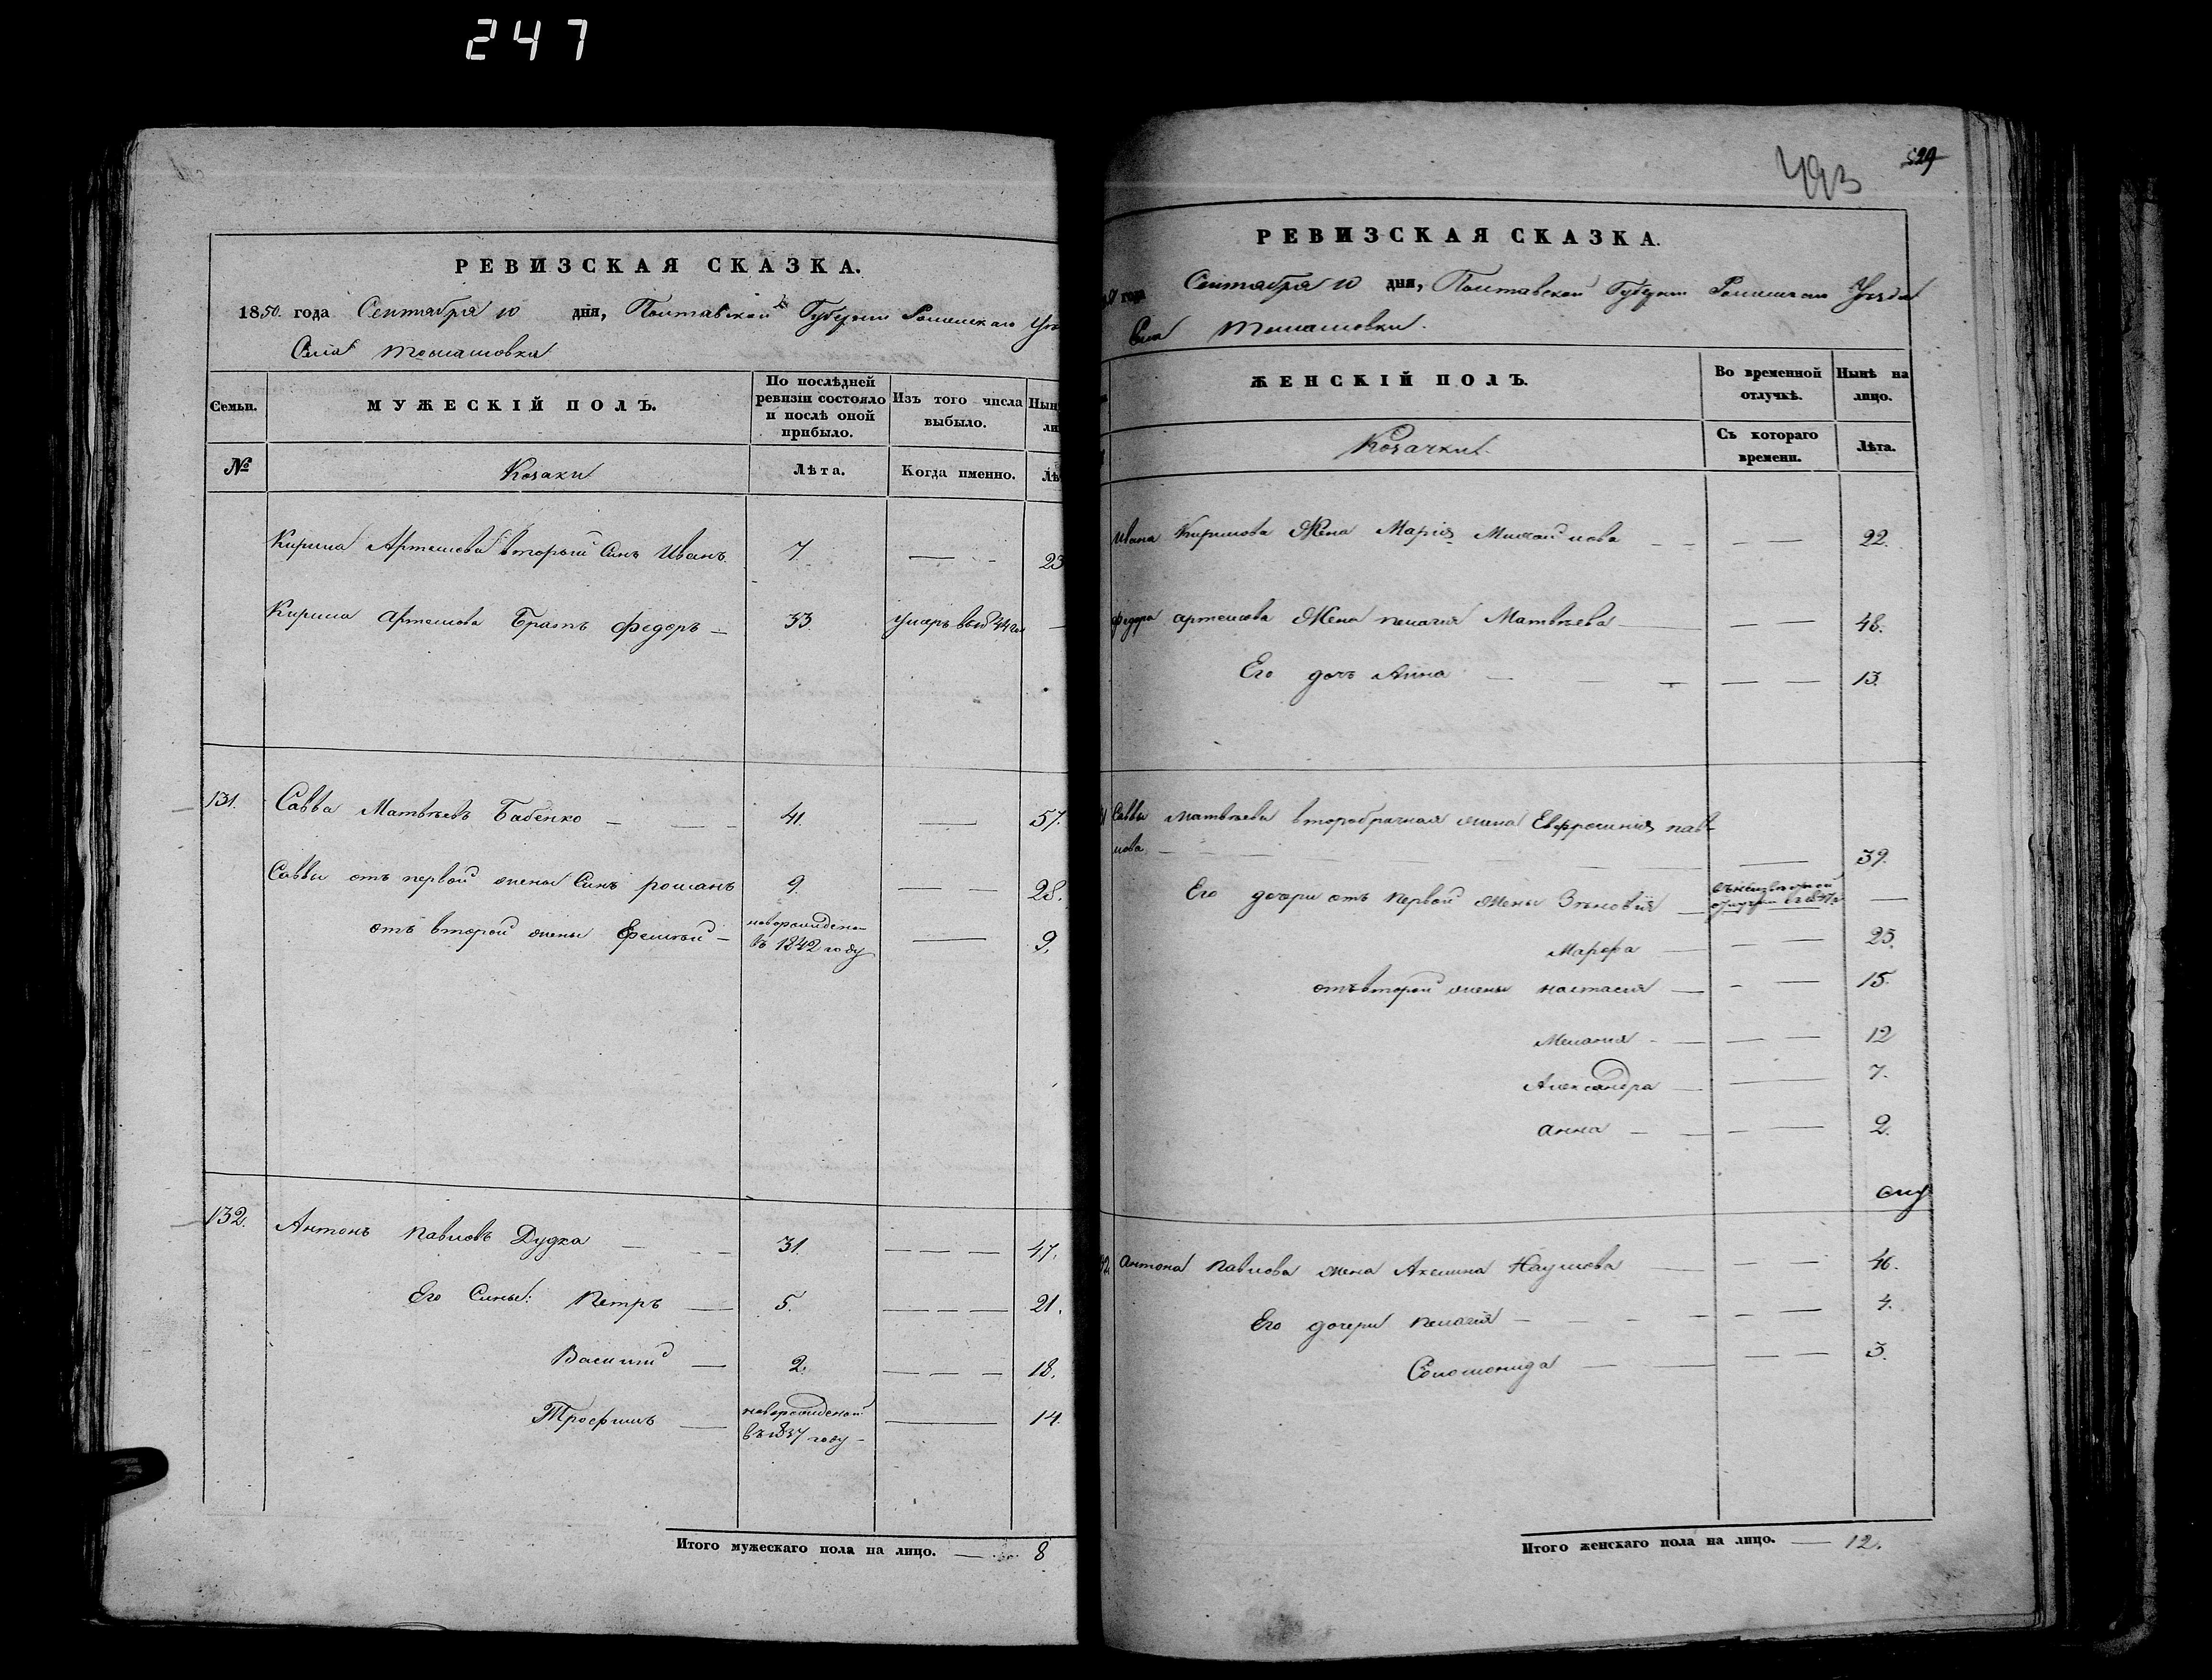 247
РЕВИЗСКАЯ СКАЗКА.
1850. года Сентября 10 дня, Полтавской Губернии Роменскаго Уѣ
Села Томашовки
Семьи.
МУЖЕСКІЙ ПОЛЪ.
По послѣдней ревизіи состояло и послѣ оной прибыло.
Изъ того числа выбыло.
Нын
ли
№
Козаки
Лѣта.
Когда именно.
Лѣ
Кирила Артемова второй Синъ Иванъ. 7 — - 23
Кирила Артемова Братъ Федоръ — 33. умеръ 44 —
131. Савва Матвѣевъ Бабенко — — — 41. — 57.
Саввы отъ первой жены Синъ романъ 9. — — 28.
отъ второй жены Еремѣй — новорожденъ — 9.
въ 1842 году
132. Антонъ Павловъ Дудка — — — 31. — — — 47.
Его Сины: Петръ — 5. — — — 21.
Василий — 2. — — — 18.
Трофимъ — новорожденой — 14.
въ 1837 году —
Итого мужескаго пола на лицо. — 8
493
529
РЕВИЗСКАЯ СКАЗКА.
года Сентября 10 дня, Полтавской Губернии Роменскаго Уѣзда
Села Томашовки.
ЖЕНСКІЙ ПОЛЪ.
Во временной отлучкѣ.
Нынѣ на лицо.
Козачки.
Съ котораго времени.
Лѣта.
Ивана Кирилова Жена Марія Михайлова — — — 22.
Федора артемова Жена пелагия Матвѣева — — — 48.
Его дочь Анна — — — — — 13.
Саввы матвѣева второбрачная жена Евфросинія пав-
лова — — — — 39.
Его дочери отъ первой Жены Зѣновія — отлучки —
Марфа — — — 25.
отъ второй жены настасия — - — 15.
Мелания - — — — 12
Александра — — 7.
анна — — — — 2.
Антона Павлова жена Акелина Наумова — — — 46.
Его дочери пелагия — — — — — — 4.
Соломонида — — — — 3.
Итого женскаго пола на лицо. — 12.